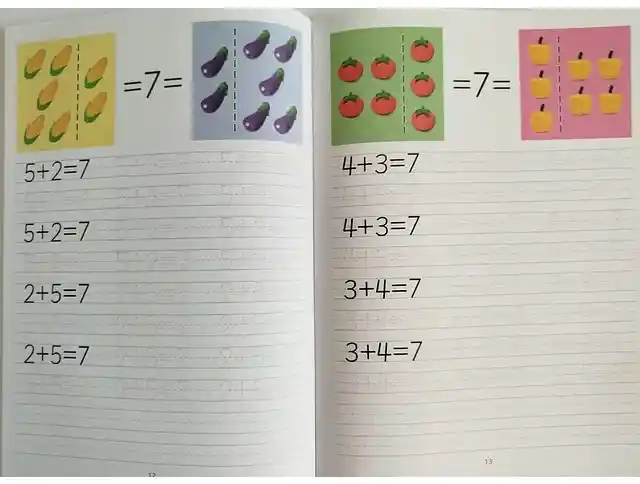 =7=
5+2=7
5+2=7
2+5=7
2+5=7
12
=7=
4+3=7
4+3=7
3+4=7
3+4=7
13